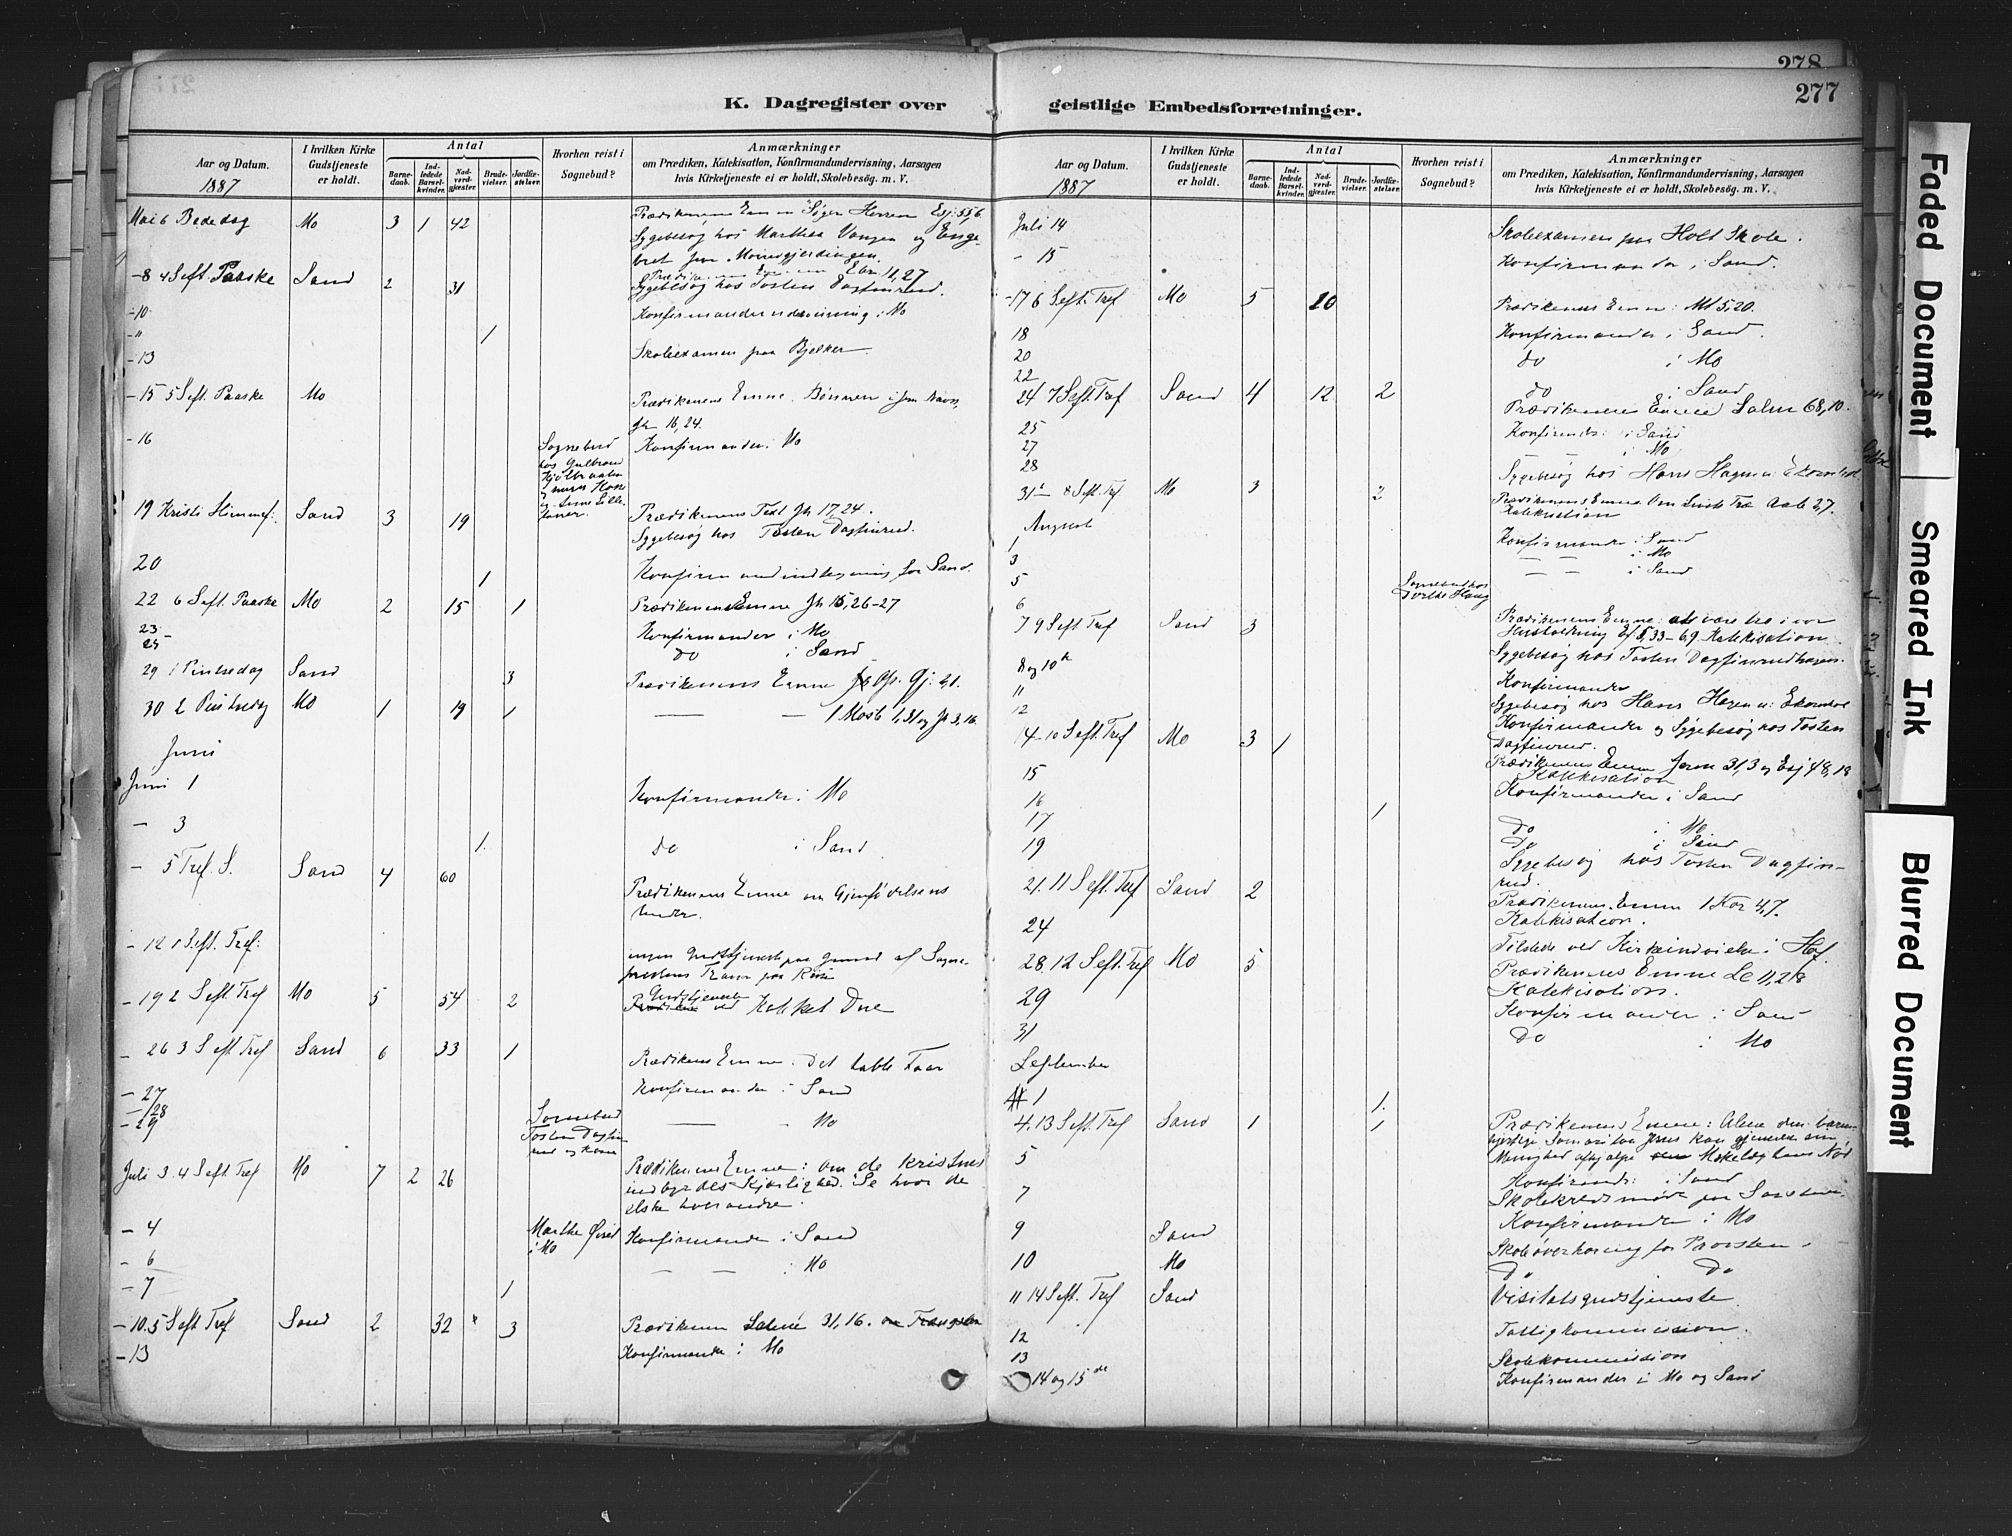 278
277
K. Dagregister over
geistlige Embedsforretninger.
Aar og Datum.
1887
I hvilken Kirke Gudstjeneste er holdt.
Antal
Barnedaab.
Indledede Barselkvinder.
Nadverdgjæster.
Brudevielser.
Jordfæstelser.
Hvorhen reist i Sognebud?
Anmærkninger
om Prædiken, Katekisation, Konfirmandundervisning, Aarsagen
hvis Kirketjeneste ei er holdt, Skolebesøg. m. V.
Mai 6 Bededag Mo 3 1 42 Prædikenens Emne Søger Herren Esj: 55,6.
Sygebesøg hos Marthea Vangen og Enge-
bret
-8 4 Seft. Paaske Sand 2 31 Ebr 11,27
Sygebesøg hos Tosten Dagfinrud.
-10 Konfirmandundervisning i Mo
-" 1
-13 Skoleexamen paa Bjelker
-15 5 Seft. Paaske Mo Prædikenens Emne. Bønnen i Jesu Navn,
Jh 16,24.
-16 Sognebud hos Konfirmander i Mo
19 Kristi Himmef: Sand 3 19 Prædikenens Text Jh 17,24.
Sygebesøg hos Tosten Dagfinrud.
20 1 for Sand.
22 6 Seft. Paaske Mo 2 15 1 Prædikenens Emne Jh 15,26-27
23 - Konfirmander i Mo
25 do i Sand
29 1 Pintsedag Sand 3 Prædikenens Emne Ap. Gj: 2,1.
30 2 Pintsedag Mo 1 19 1 — — 1 Mosb 1,31 og Jh 3,16
Juni
Juni 1 Konfirmander i Mo
- 3 1. do i Sand
- 5 Tref. S. Sand 4 60 Prædikenens Emne om Gjenfødelsens
under.
- 12 1 Seft. Tref: ingen Gudstjeneste paa Grund af Sogne-
prestens Fravær paa Reise
- 19 2 Seft Tref Mo 5 54 2 Gudstjeneste ved Kateket Due
- 26 3 Seft Tref Sand 6 33 1 Prædikens Emne: Det tabte Faar
- 27 Konfirmander i Sand
- 28
- 29 Sognebud — Mo
Tosten Dagfin
rud og Kone
Juli 3. 4 Seft Tref Mo 7 2 26 Prædikenens Emne: om de kristnes
indbyrdes Kjærlighed. Se hvor de
elske hverandre.
- 4 Marthe i Mo Konfirmander i Sand
- 6 — — i Mo
- 7 1
- 10. 5 Seft Tref Sand 2 32 3 Prædikenen Salme 31,16.
- 13 Konfirmander i Mo
Aar og Datum.
1887
I hvilken Kirke Gudstjeneste er holdt.
Antal
Barnedaab.
Indledede Barselkvinder.
Nadverdgjæster.
Brudevielser.
Jordfæstelser.
Hvorhen reist i Sognebud?
Anmærkninger
om Prædiken, Katekisation, Konfirmandundervisning, Aarsagen
hvis Kirketjeneste ei er holdt, Skolebesøg. m. V.
Juli 14 Skoleexamen paa Holt Skole.
- 15 Konfirmander i Sand.
-17 6 Seft. Tref Mo 5 20 Prædikenens Emne: Mt 5,20.
18 Konfirmander i Sand.
20 do i Mo
22 do i Sand
24 7 Seft Tref Sand 4 12 2 Prædikenens Emne Salm 68,10.
25 Konfirmds: i Sand
27 — i Mo
28 Sygebesøg hos Hans Hagen
31 8 Seft. Tref. Mo 3 2 Prædikenens Emne Om Livets Træ Aab 2,7.
Katekisation
August
1 Konfirmander i Sand
3 — — i Mo
5 — — i Sand
6 Sognebud hos
Dorthe Haug
7 9 Seft Tref Sand 3 Prædikenens Emne: at være tro i vor
Husholdning 33-69 Katekisation
8 og 10de Sygebesøg hos Tosten Dagfinrudhagen.
11 Konfirmander
12 Sygebesøg hos Hans Hagen
Konfirmander og Sygebesøg hos Tosten
Dagfinrud.
14 10 Seft. Tref Mo 3 1 Prædikenens Emne Jerm 31,3 og Esj 48,18
Katekisation
15 Konfirmander i Sand
16 1
17 do i Mo
19 do i Sand
Sygebesøg hos Tosten Dagfin-
rud.
21. 11 Seft. Tref Sand 2 Prædikenens Emne 1 Kor 4,7.
Katekisation.
24 Tilstede ved Kirkeindvielse i Hof.
28. 12 Seft. Tref Mo 5 Prædikenens Emne Lc 11,28
Katekisation.
29 Konfirmander i Sand
31 Do i Mo
September
1 1.
4. 13 Seft. Tref Sand 1 1 Prædikenens Emne: Alene den barm-
hjertige Samaritan Jesus kan
5 Konfirmds: i Sand
7 Skolekredsmøde paa
Konfirmander i Mo
9 Sand Skoleoverhøring for Provsten.
10 Mo Do Do
11 14 Seft. Tref Sand Visitatsgudstjeneste
12 Fattigkommission.
13 Skolekommission
14 og 15de Konfirmander i Mo og Sand
Faded Document
Smeared Ink
Blurred Document